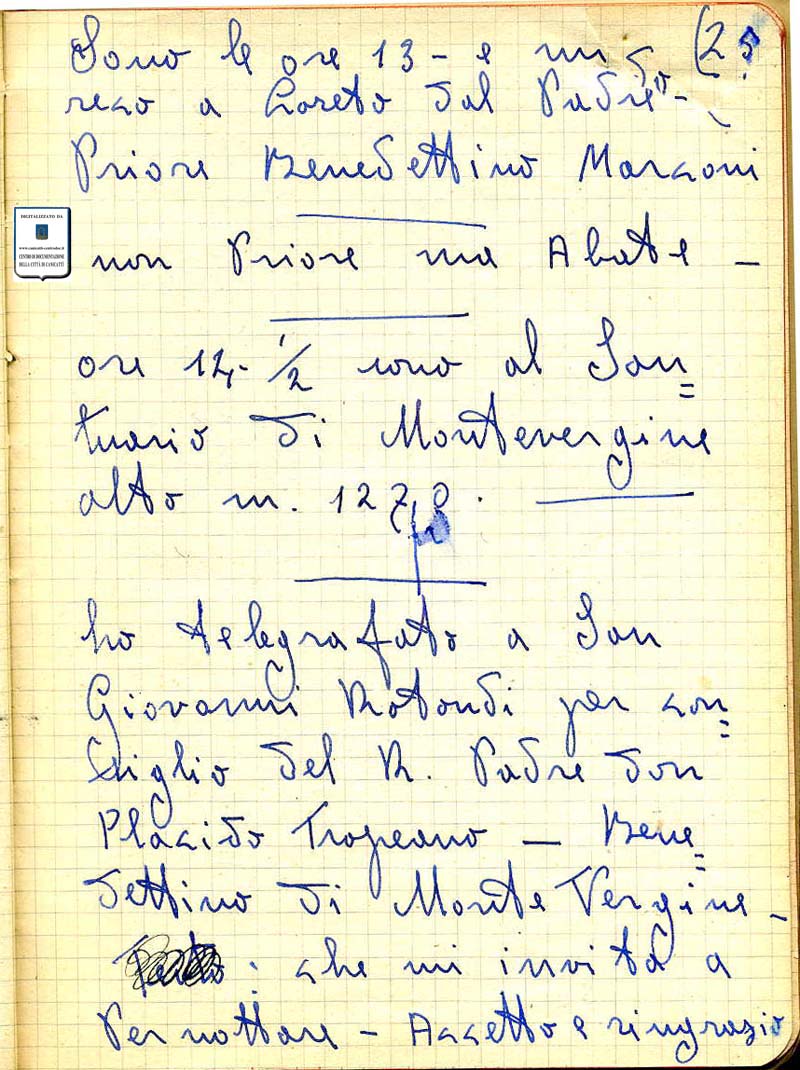 Sono le ore 13 - e mi (25
reco a Loreto dal Padre -
Priore Benedettino Marconi
DIGITALIZZATO DA
www.canicatti-centrodoc.it
CENTRO DI DOCUMENTAZIONE
DELLA CITTÀ DI CANICATTÌ
non Priore ma Abate -
ore 14,- 1/2 sono al San=
tuario di Montevergine
alto m. 1270.
ho telegrafato a San
Giovanni Rotondi per con=
siglio del R. Padre don
Placido Tropeano - Bene=
dettino di Monte Vergine -
: che mi invita a
Pernottare - Accetto e ringrazio